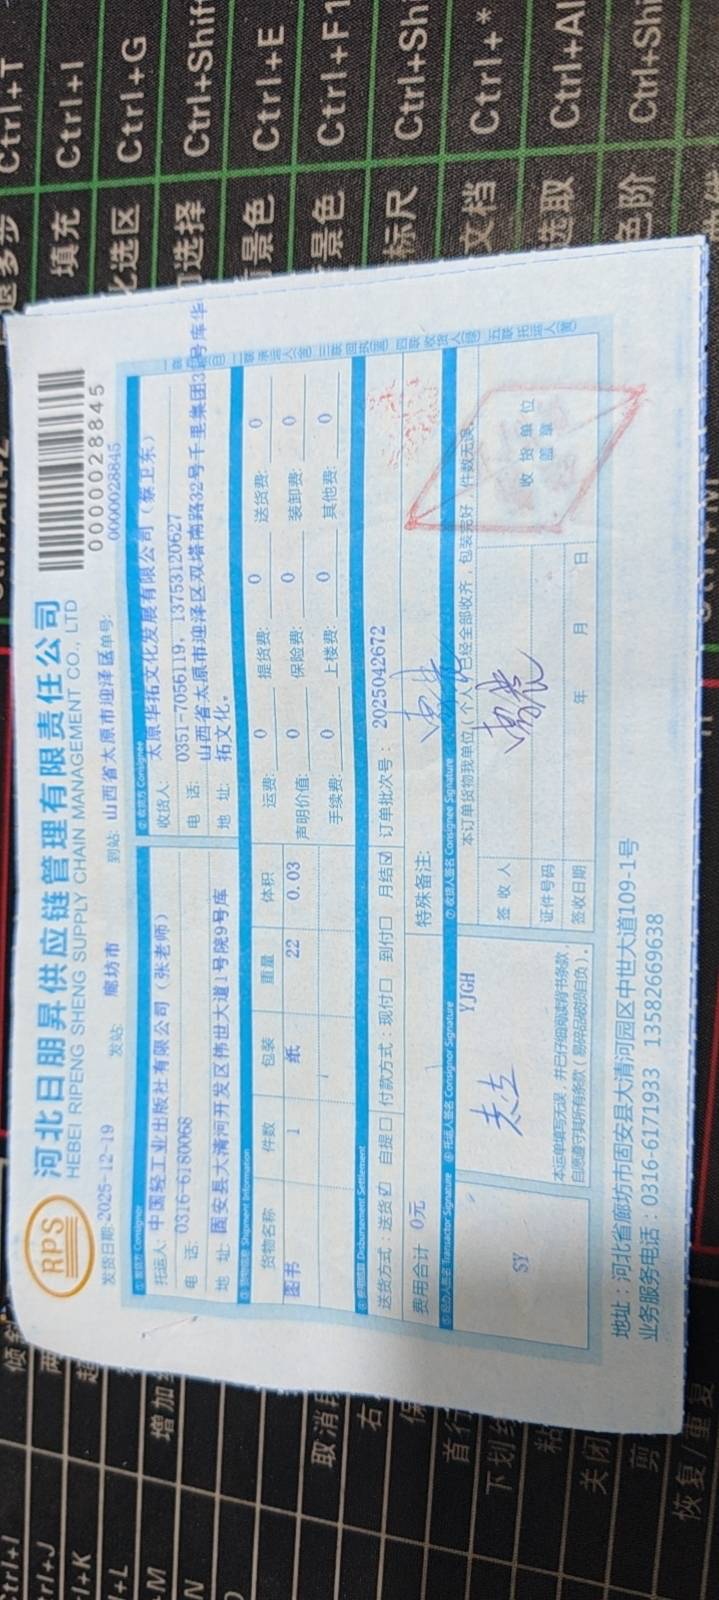 RPS
河北日朋昇供应链管理有限责任公司
HEBEI RIPENG SHENG SUPPLY CHAIN MANAGEMENT CO., LTD
0000028845
发货日期:2025-12-19 发站: 廊坊市 到站: 山西省太原市迎泽区 单号: 0000028845
① 发货方 Consignor
托运人: 中国轻工业出版社有限公司（张老师）
电 话: 0316-6180068
地 址: 固安县大清河开发区伟世大道1号院9号库
② 收货方 Consignee
收货人: 太原华拓文化发展有限公司（蔡卫东）
电 话: 0351-7056119, 13753120627
地 址: 山西省太原市迎泽区双塔南路32号千里集团3号库华
拓文化。
③ 货物信息 Shipment Information
货物名称 件数 包装 重量 体积 运费: 0 提货费: 0 送货费: 0
图书 1 纸 22 0.03 声明价值: 0 保险费: 0 装卸费: 0
手续费: 0 上楼费: 0 其他费: 0
④ 费用结算 Disbursement Settlement
送货方式：送货☑ 自提□ 付款方式：现付□ 到付□ 月结☑ 订单批次号： 2025042672
费用合计 0元 特殊备注:
⑤ 经办人签名 Transactor Signature
SY
⑥ 托运人签名 Consignor Signature
YJGH
本运单填写无误，并已仔细阅读背书条款，
自愿遵守其所有条款（易碎品破损自负）。
⑦ 收货人签名 Consignee Signature
本订单货物我单位(个人)已经全部收齐，包装完好 件数无误
签 收 人
证件号码
签收日期 年 月 日
收 货 单 位
盖 章
地址：河北省廊坊市固安县大清河园区中世大道109-1号
业务服务电话：0316-6171933 13582669638
Ctrl+T
Ctrl+I
Ctrl+G
Ctrl+Shif
Ctrl+E
Ctrl+F1
Ctrl+Sh
Ctrl+*
Ctrl+Al
Ctrl+Sh
填充
选区
选择
景色
景色
标尺
文档
选取
色阶
增加
取消
右
首行
下划线
关闭
剪
恢复/重复
Ctrl+I
trl+J
l+K
+L
+M
N